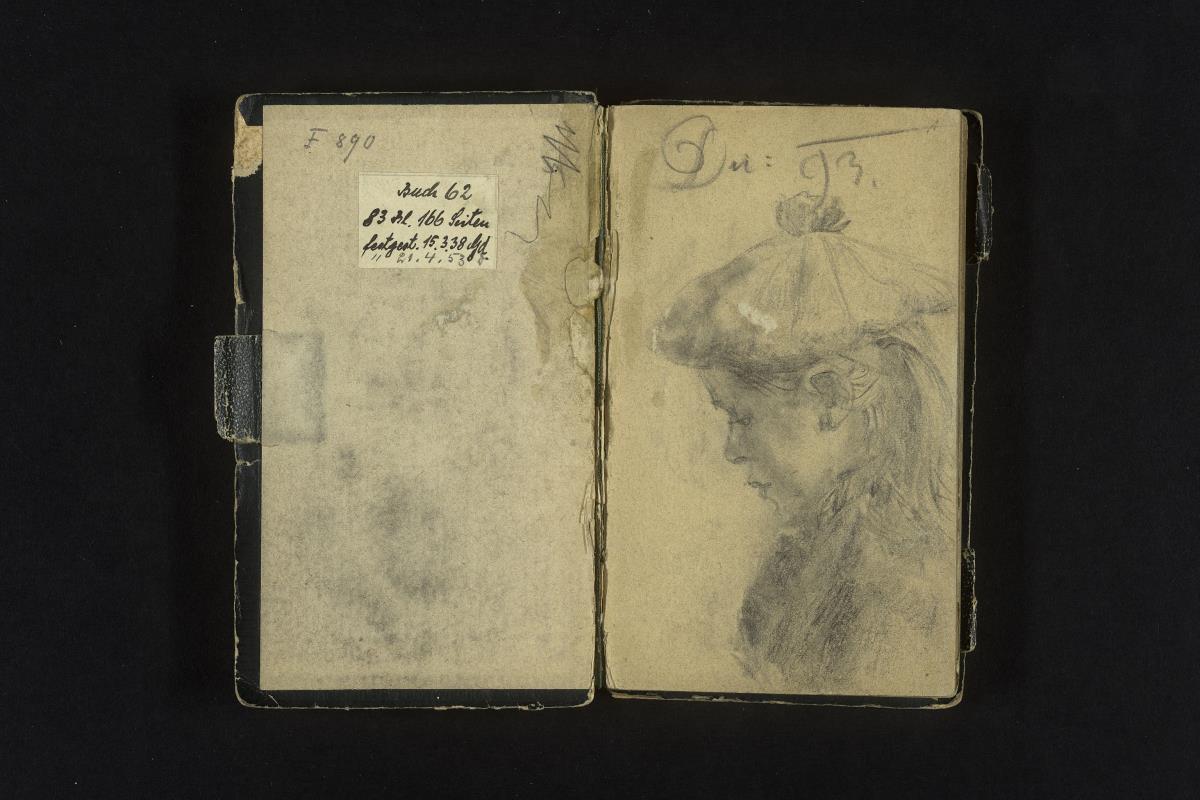 F 890
Buch 62
83 Bl. 166 Seiten
festgest. 15.3.38
" 21.4.53
93.